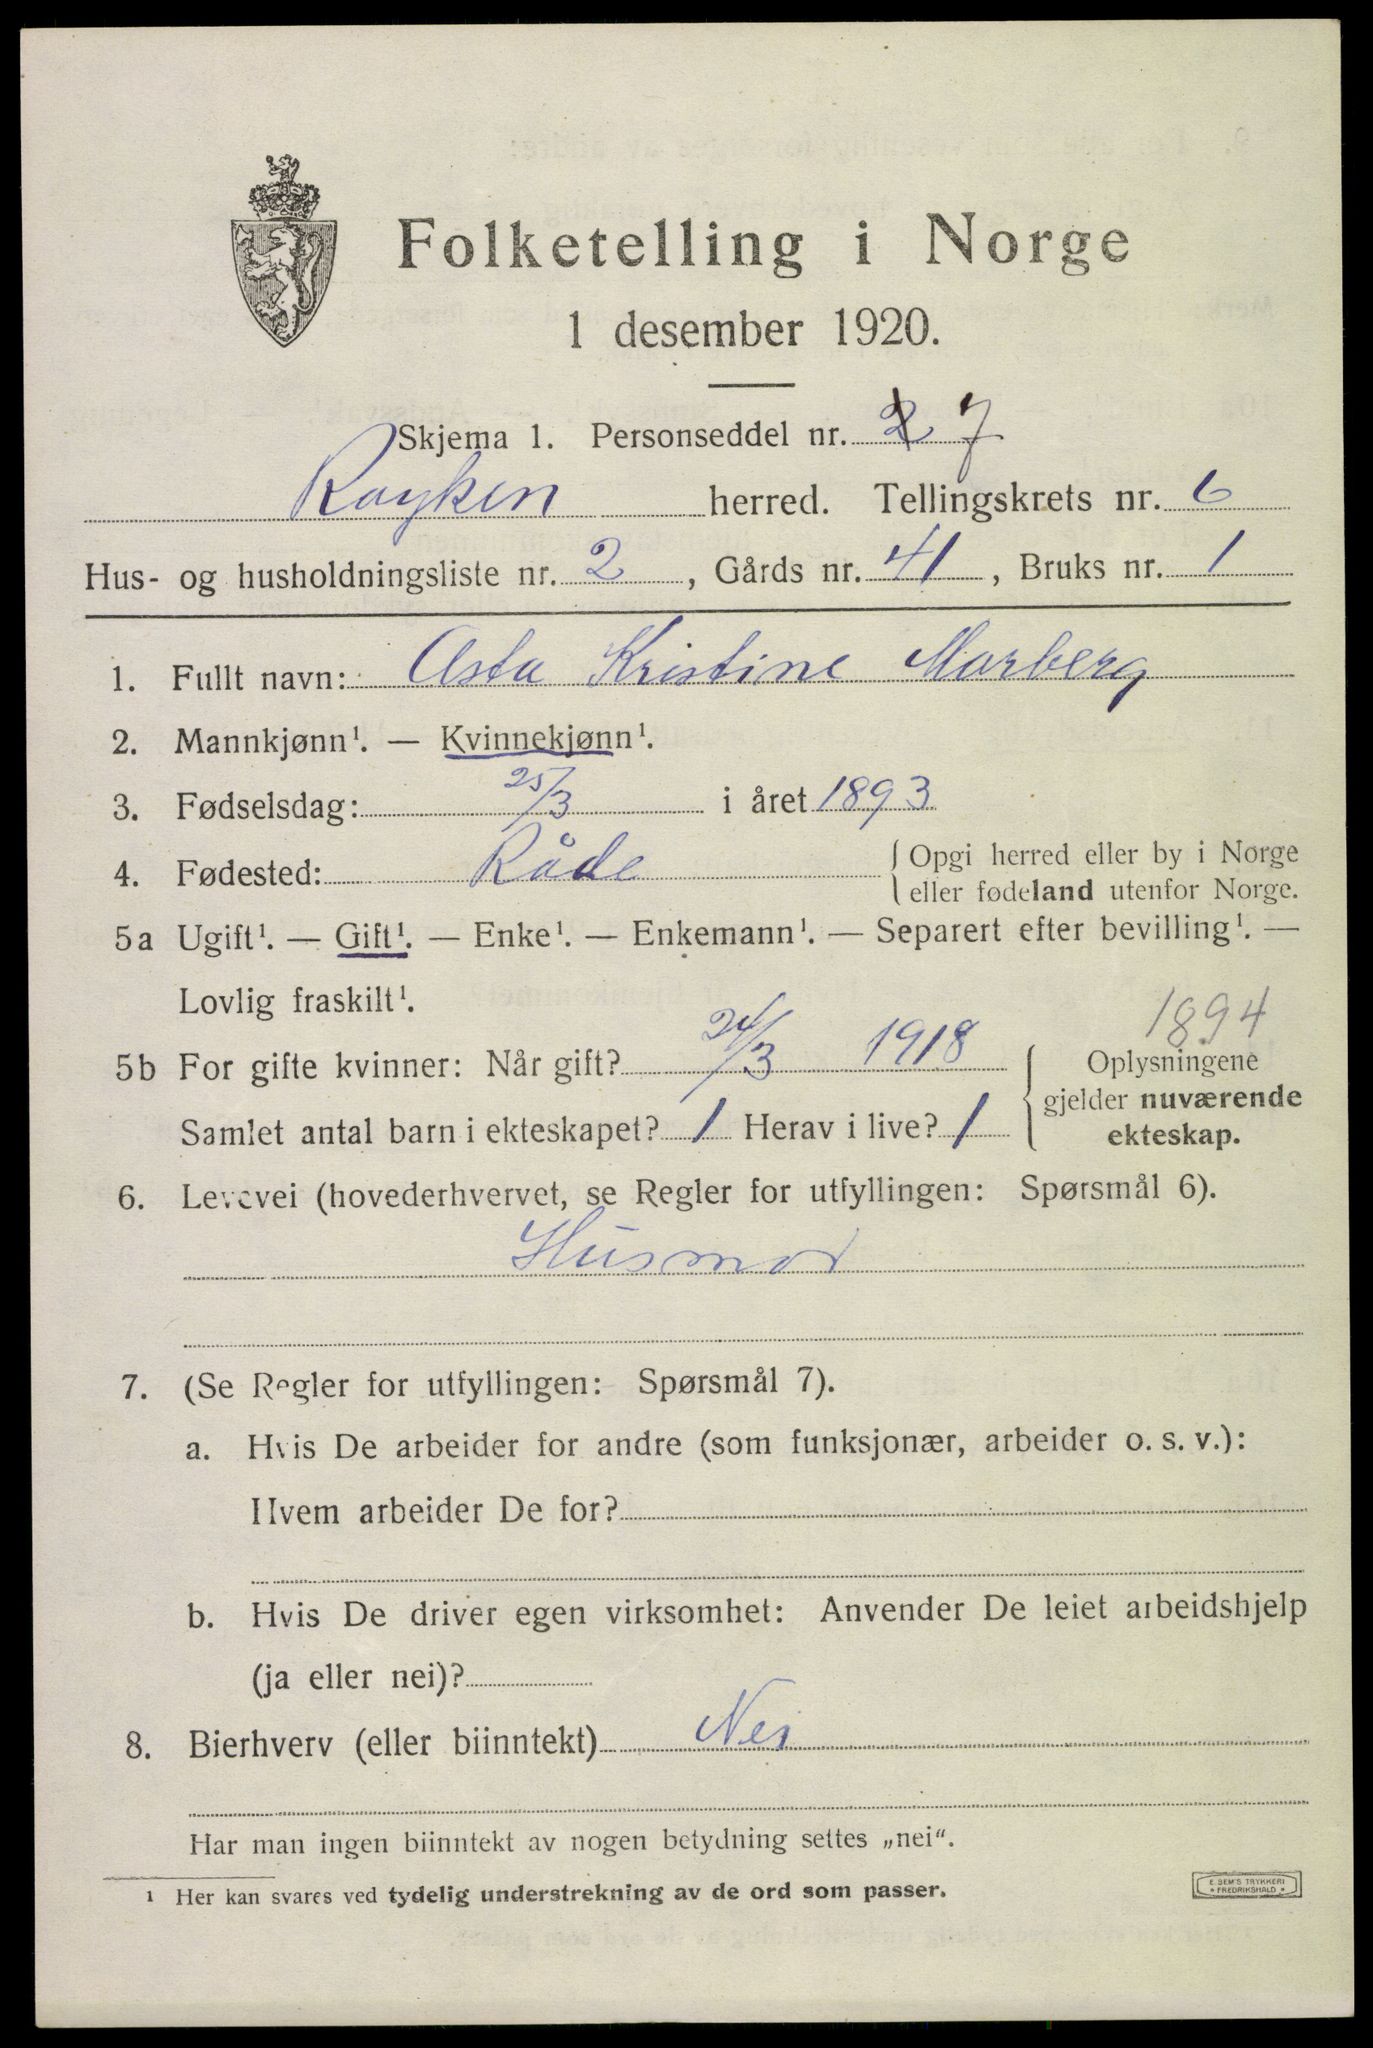 Folketelling i Norge
1 desember 1920.
Skjema 1. Personseddel nr. 2 7
Røyken herred. Tellingskrets nr. 6
Hus- og husholdningsliste nr. 2, Gårds nr. 41, Bruks nr. 1
1. Fullt navn: Asta Kristine Morberg
2. Mannkjønn¹. — Kvinnekjønn¹.
3. Fødselsdag: 25/3 i året 1893
4. Fødested: Råde { Opgi herred eller by i Norge
eller fødeland utenfor Norge.
5a Ugift¹. — Gift¹. — Enke¹. — Enkemann¹. — Separert efter bevilling¹. —
Lovlig fraskilt¹.
1894
5b For gifte kvinner: Når gift? 24/3 1918 { Oplysningene
gjelder nuværende
Samlet antal barn i ekteskapet? 1 Herav i live? 1 ekteskap.
6. Levevei (hovederhvervet, se Regler for utfyllingen: Spørsmål 6).
Husmor
7. (Se Regler for utfyllingen: Spørsmål 7).
a. Hvis De arbeider for andre (som funksjonær, arbeider o. s. v.):
Hvem arbeider De for?
b. Hvis De driver egen virksomhet: Anvender De leiet arbeidshjelp
(ja eller nei)?
8. Bierhverv (eller biinntekt) Nei
Har man ingen biinntekt av nogen betydning settes „nei“.
¹ Her kan svares ved tydelig understrekning av de ord som passer.
E. SEM'S TRYKKERI
* FREDRIKSHALD *